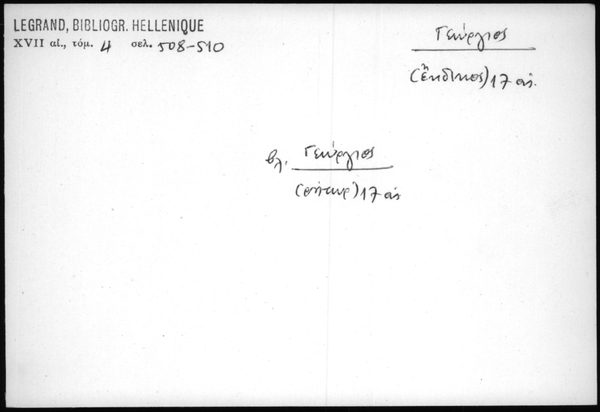 LEGRAND, BIBLIOGR. HELLENIQUE
XVII αἰ., τόμ. 4 σελ. 508-510
Γεώργιος
(ἢ ἔκδικος) 17 αἰ.
βλ. Γεώργιος
17 αἰ